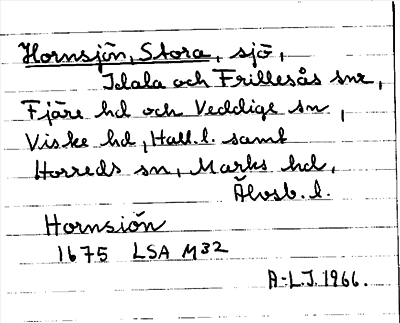 Hornsjön, Stora, sjö,
Idala och Frillesås snr,
Fjäre hd och Veddige sn,
Viske hd, Hall. l. samt
Horreds sn, Marks hd,
Älvsb. l.
Hornsiön
1675 LSA M32
A-L.J. 1966.